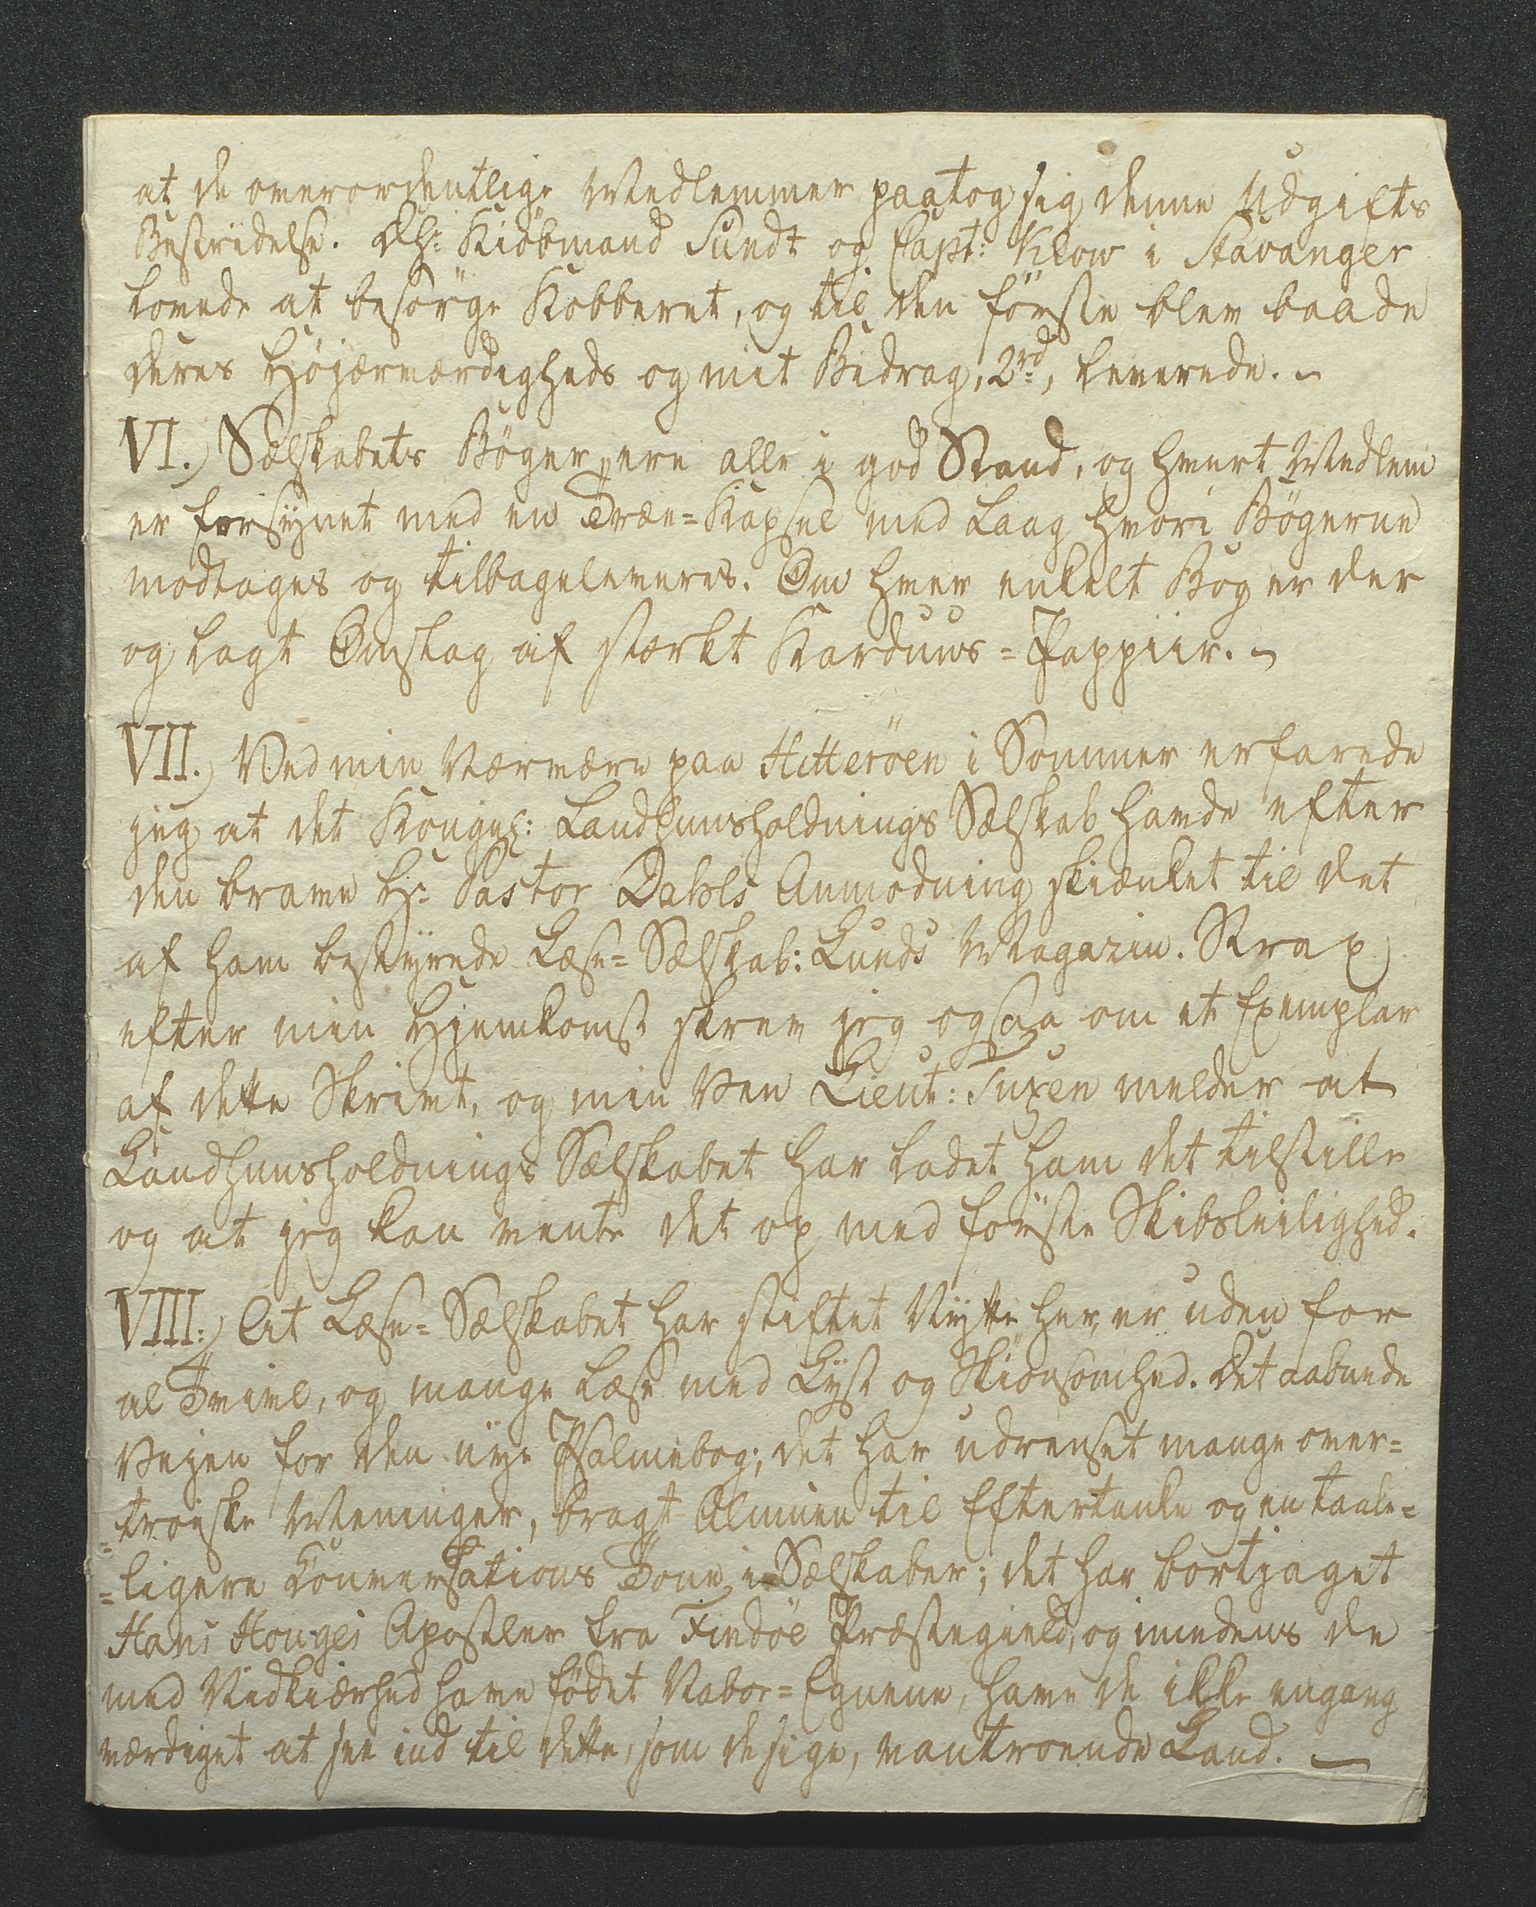 at de overordentlige Medlemmer paatog sig denne Udgifts
Bestridelse. DHr: Kiöbmand Sundt og Capt: Klow i Stavanger
lovede at besörge Kobberet, og til den förste blev baade
deres Höjærværdigheds og mit Bidrag, 2rd, leverede. ~
VI.) Sælskabets Böger ere alle i god Stand, og hvert Medlem
er forsÿnet med en Træe=Kapsel med Laag hvori Bögerne
modtages og tilbageleveres. Om hver enkelt Bog er der
og lagt Omslag af stærkt Karduus=Pappiir. ~
VII.) Ved min Nærvære paa Hitteröen i Sommer erfarede
jeg at det Kongel: Landhuusholdnings Sælskab havde efter
den brave Hr. Pastor Dahls Anmodning skiænket til det
af ham bestÿrede Læse=Sælskab: Lunds Magazin. Strax
efter min Hjemkomst skrev jeg ogsaa om et Exemplar
af dette Skrivt, og min Ven Lieut: Tuxen melder at
Landhuusholdnings Sælskabet har ladet ham det tilstille
og at jeg kan vente det op med förste Skibsleilighed.
VIII:) At Læse=Sælskabet har stiftet Nÿtte her, er uden for
al Tvivl, og mange læse med Lÿst og Skiönsomhed. Det aabnede
Vejen for den nÿe Psalmebog; det har udrenset mange over=
=troiske Meninger, bragt Almuen til Eftertanke og en taale=
=ligere Conversations Tone i Sælskaber; det har bortjaget
Hans Houges Apostler fra Findöe Præstegield, og imedens de
med Nidkiærhed have födet Nabor=Egnene, have de ikke engang
værdiget at see ind til dette, som de sige, vantroende Land. ~